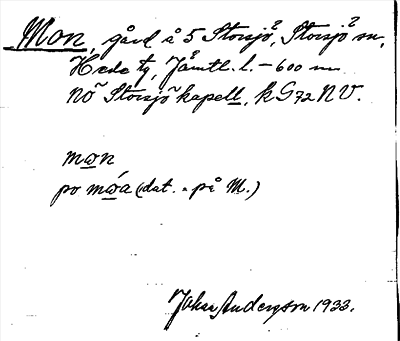 Mon, gård å 5 Storsjö, Storsjö sn,
Hede tg, Jämtl. l. – 600 m
NÖ Storsjö kapell, k G72 NV.
mɷn
po mɷ́a (dat. "på M.)
Johan Anderson 1933.